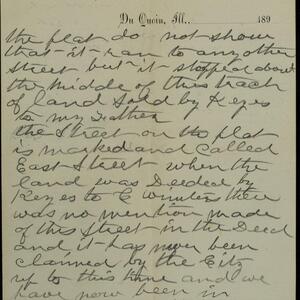 Du Quoin, Ill., 189
the plat do not show
that it ran to any other
street but it stopped about
the middle of this track
of land sold by Keyes
to my Father
the street on the plat
is marked and called
East Street when the
land was Deeded by
Keyes to E there
was no mention made
of this street in the Deed
and it has never been
claimed by the City
up to this time and we
have now been in